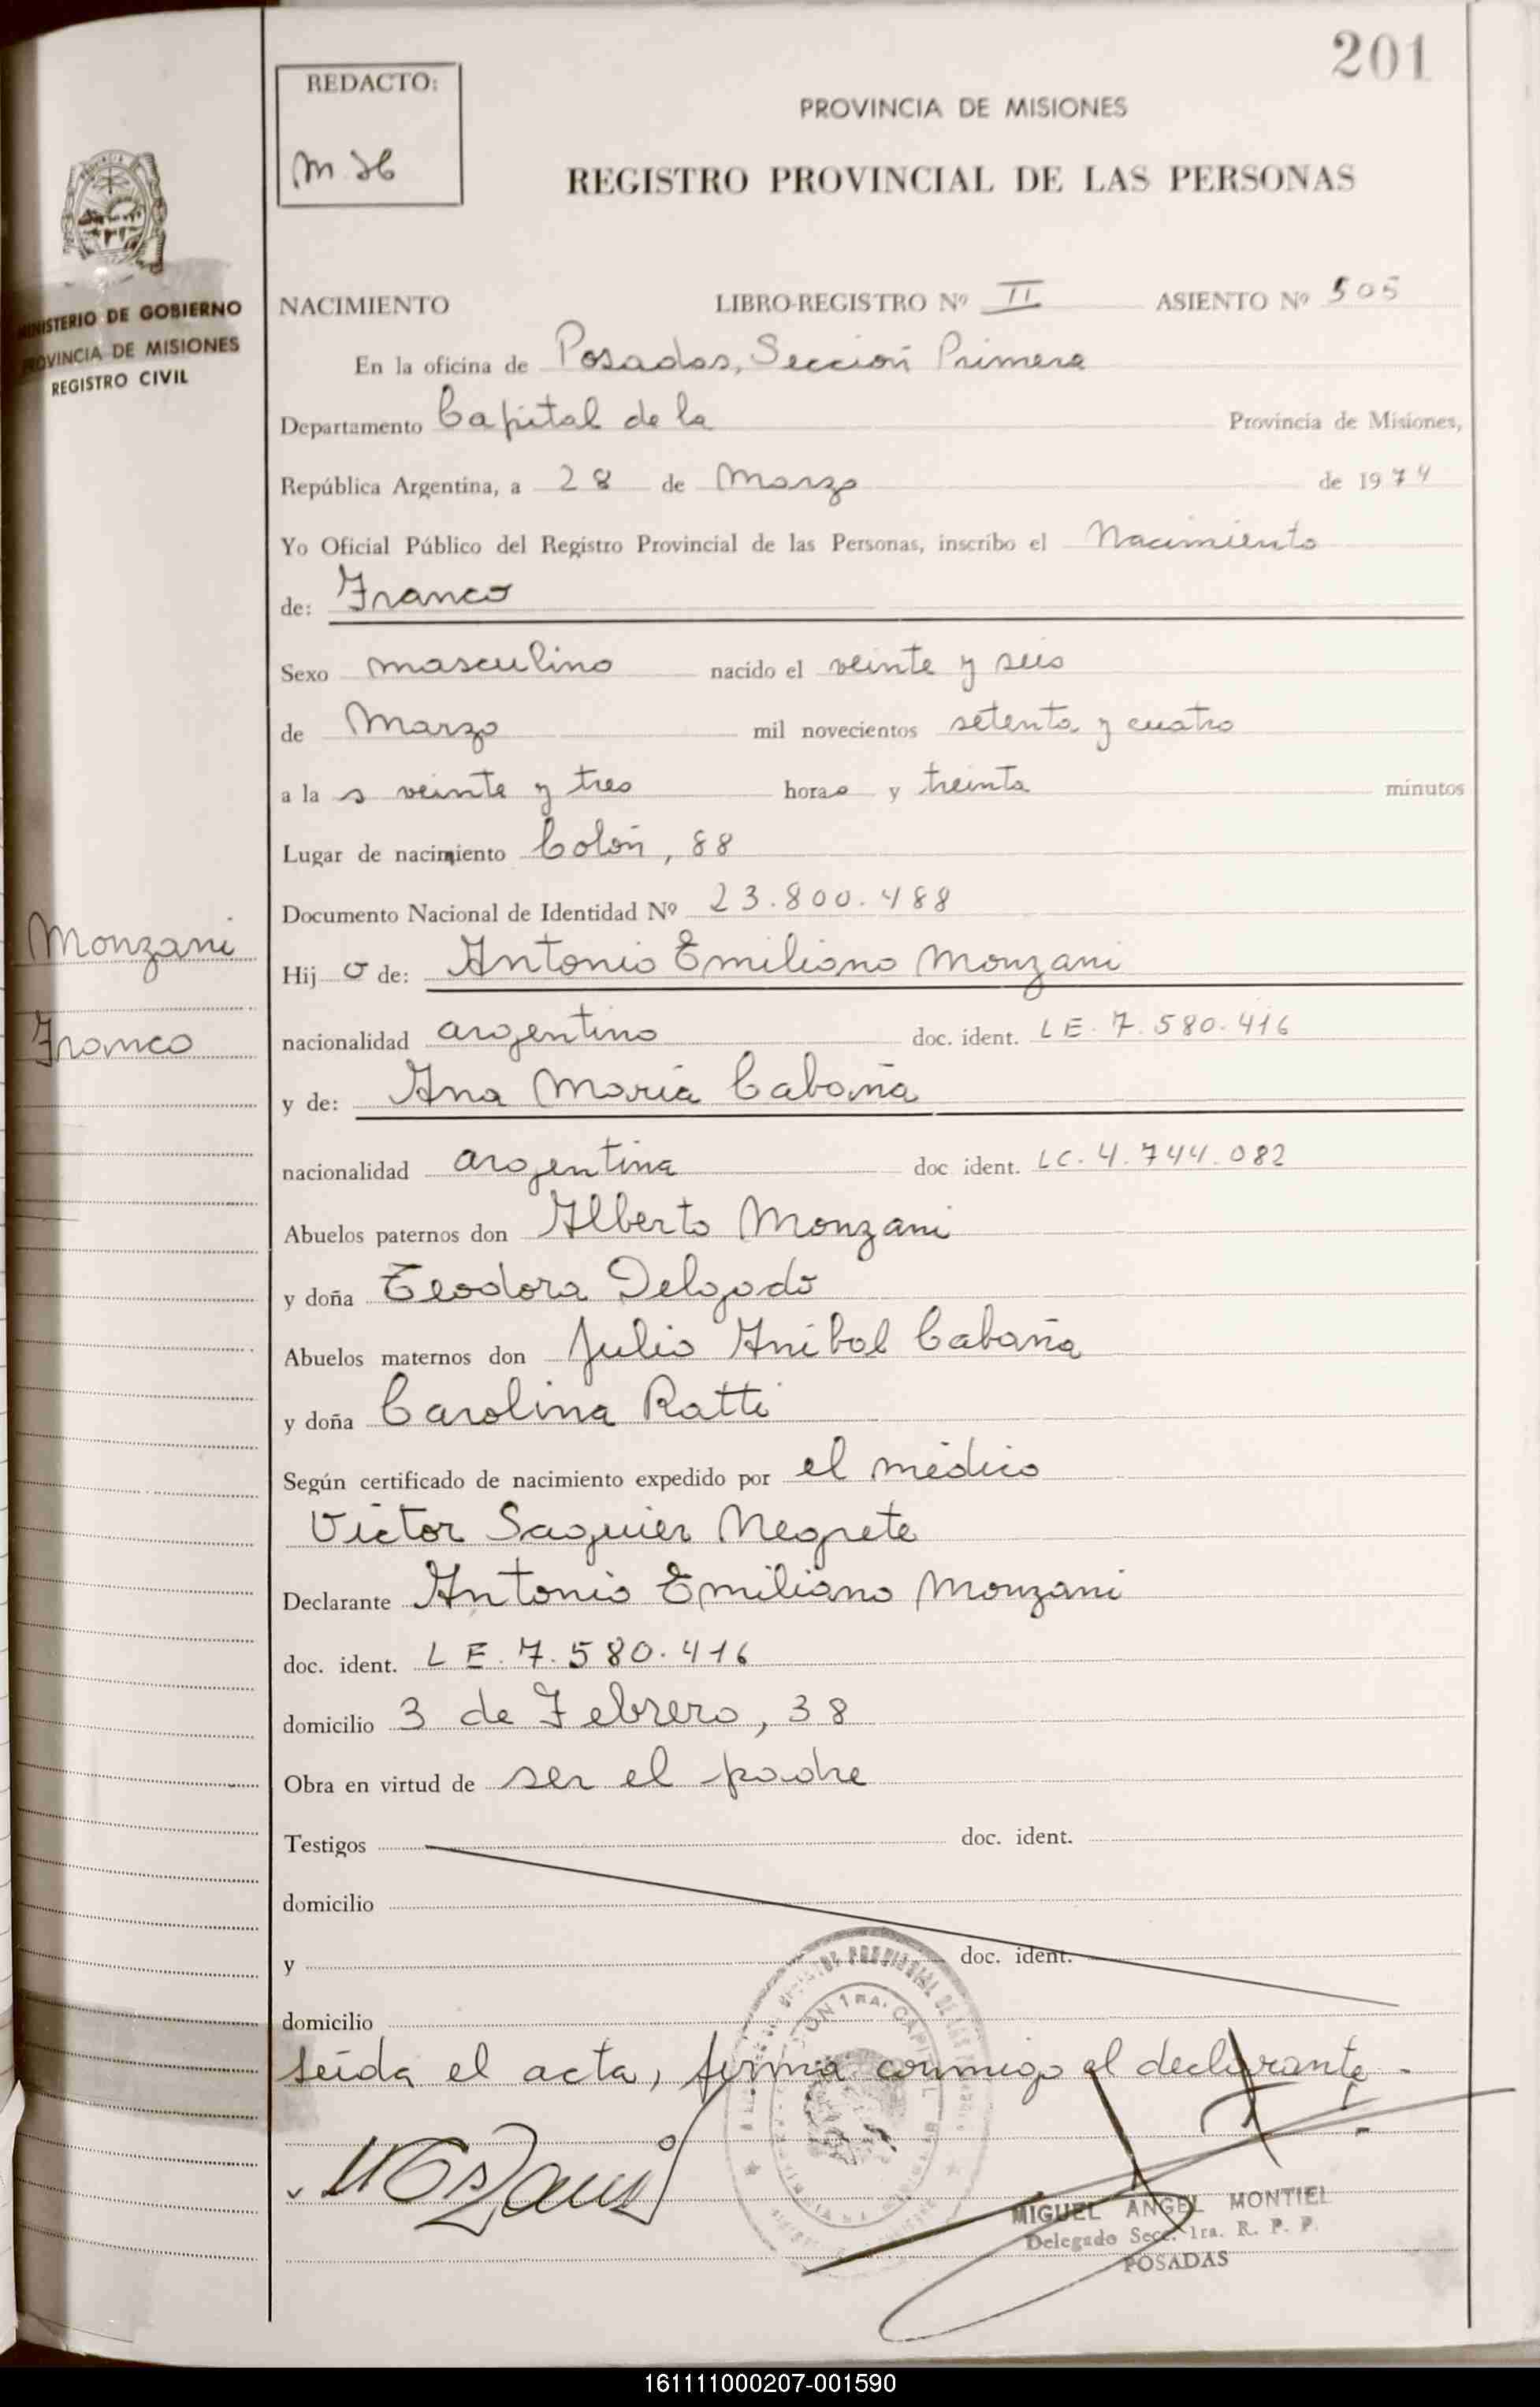 201
REDACTO:
PROVINCIA DE MISIONES
REGISTRO PROVINCIAL DE LAS PERSONAS
MINISTERIO DE GOBIERNO
PROVINCIA DE MISIONES
REGISTRO CIVIL
NACIMIENTO LIBRO-REGISTRO Nº II ASIENTO Nº 505
En la oficina de Posadas, Sección Primera
Departamento Capital de la Provincia de Misiones,
República Argentina, a 28 de Marzo de 1974
Yo Oficial Público del Registro Provincial de las Personas, inscribo el Nacimiento
de: Franco
Sexo masculino nacido el veinte y seis
de Marzo mil novecientos setenta y cuatro
a la s veinte y tres horas y treinta minutos
Lugar de nacimiento Colón, 88
Documento Nacional de Identidad Nº 23.800.488
Monzani
Hij o de: Antonio Emiliano Monzani
Franco
nacionalidad argentino doc. ident. LE. 7.580.416
y de: Ana María Cabaña
nacionalidad argentina doc ident. LC. 4.744.082
Abuelos paternos don Alberto Monzani
y doña Teodora Delgado
Abuelos maternos don Julio Anibal Cabaña
y doña Carolina Ratti
Según certificado de nacimiento expedido por el médico
Victor Saguier Negrete
Declarante Antonio Emiliano Monzani
doc. ident. LE. 7.580.416
domicilio 3 de Febrero, 38
Obra en virtud de ser el padre
Testigos doc. ident.
domicilio
y doc. ident.
domicilio
Leída el acta, firma conmigo el declarante.-
MIGUEL ANGEL MONTIEL
Delegado Secc. 1ra. R. P. P.
POSADAS
161111000207-001590